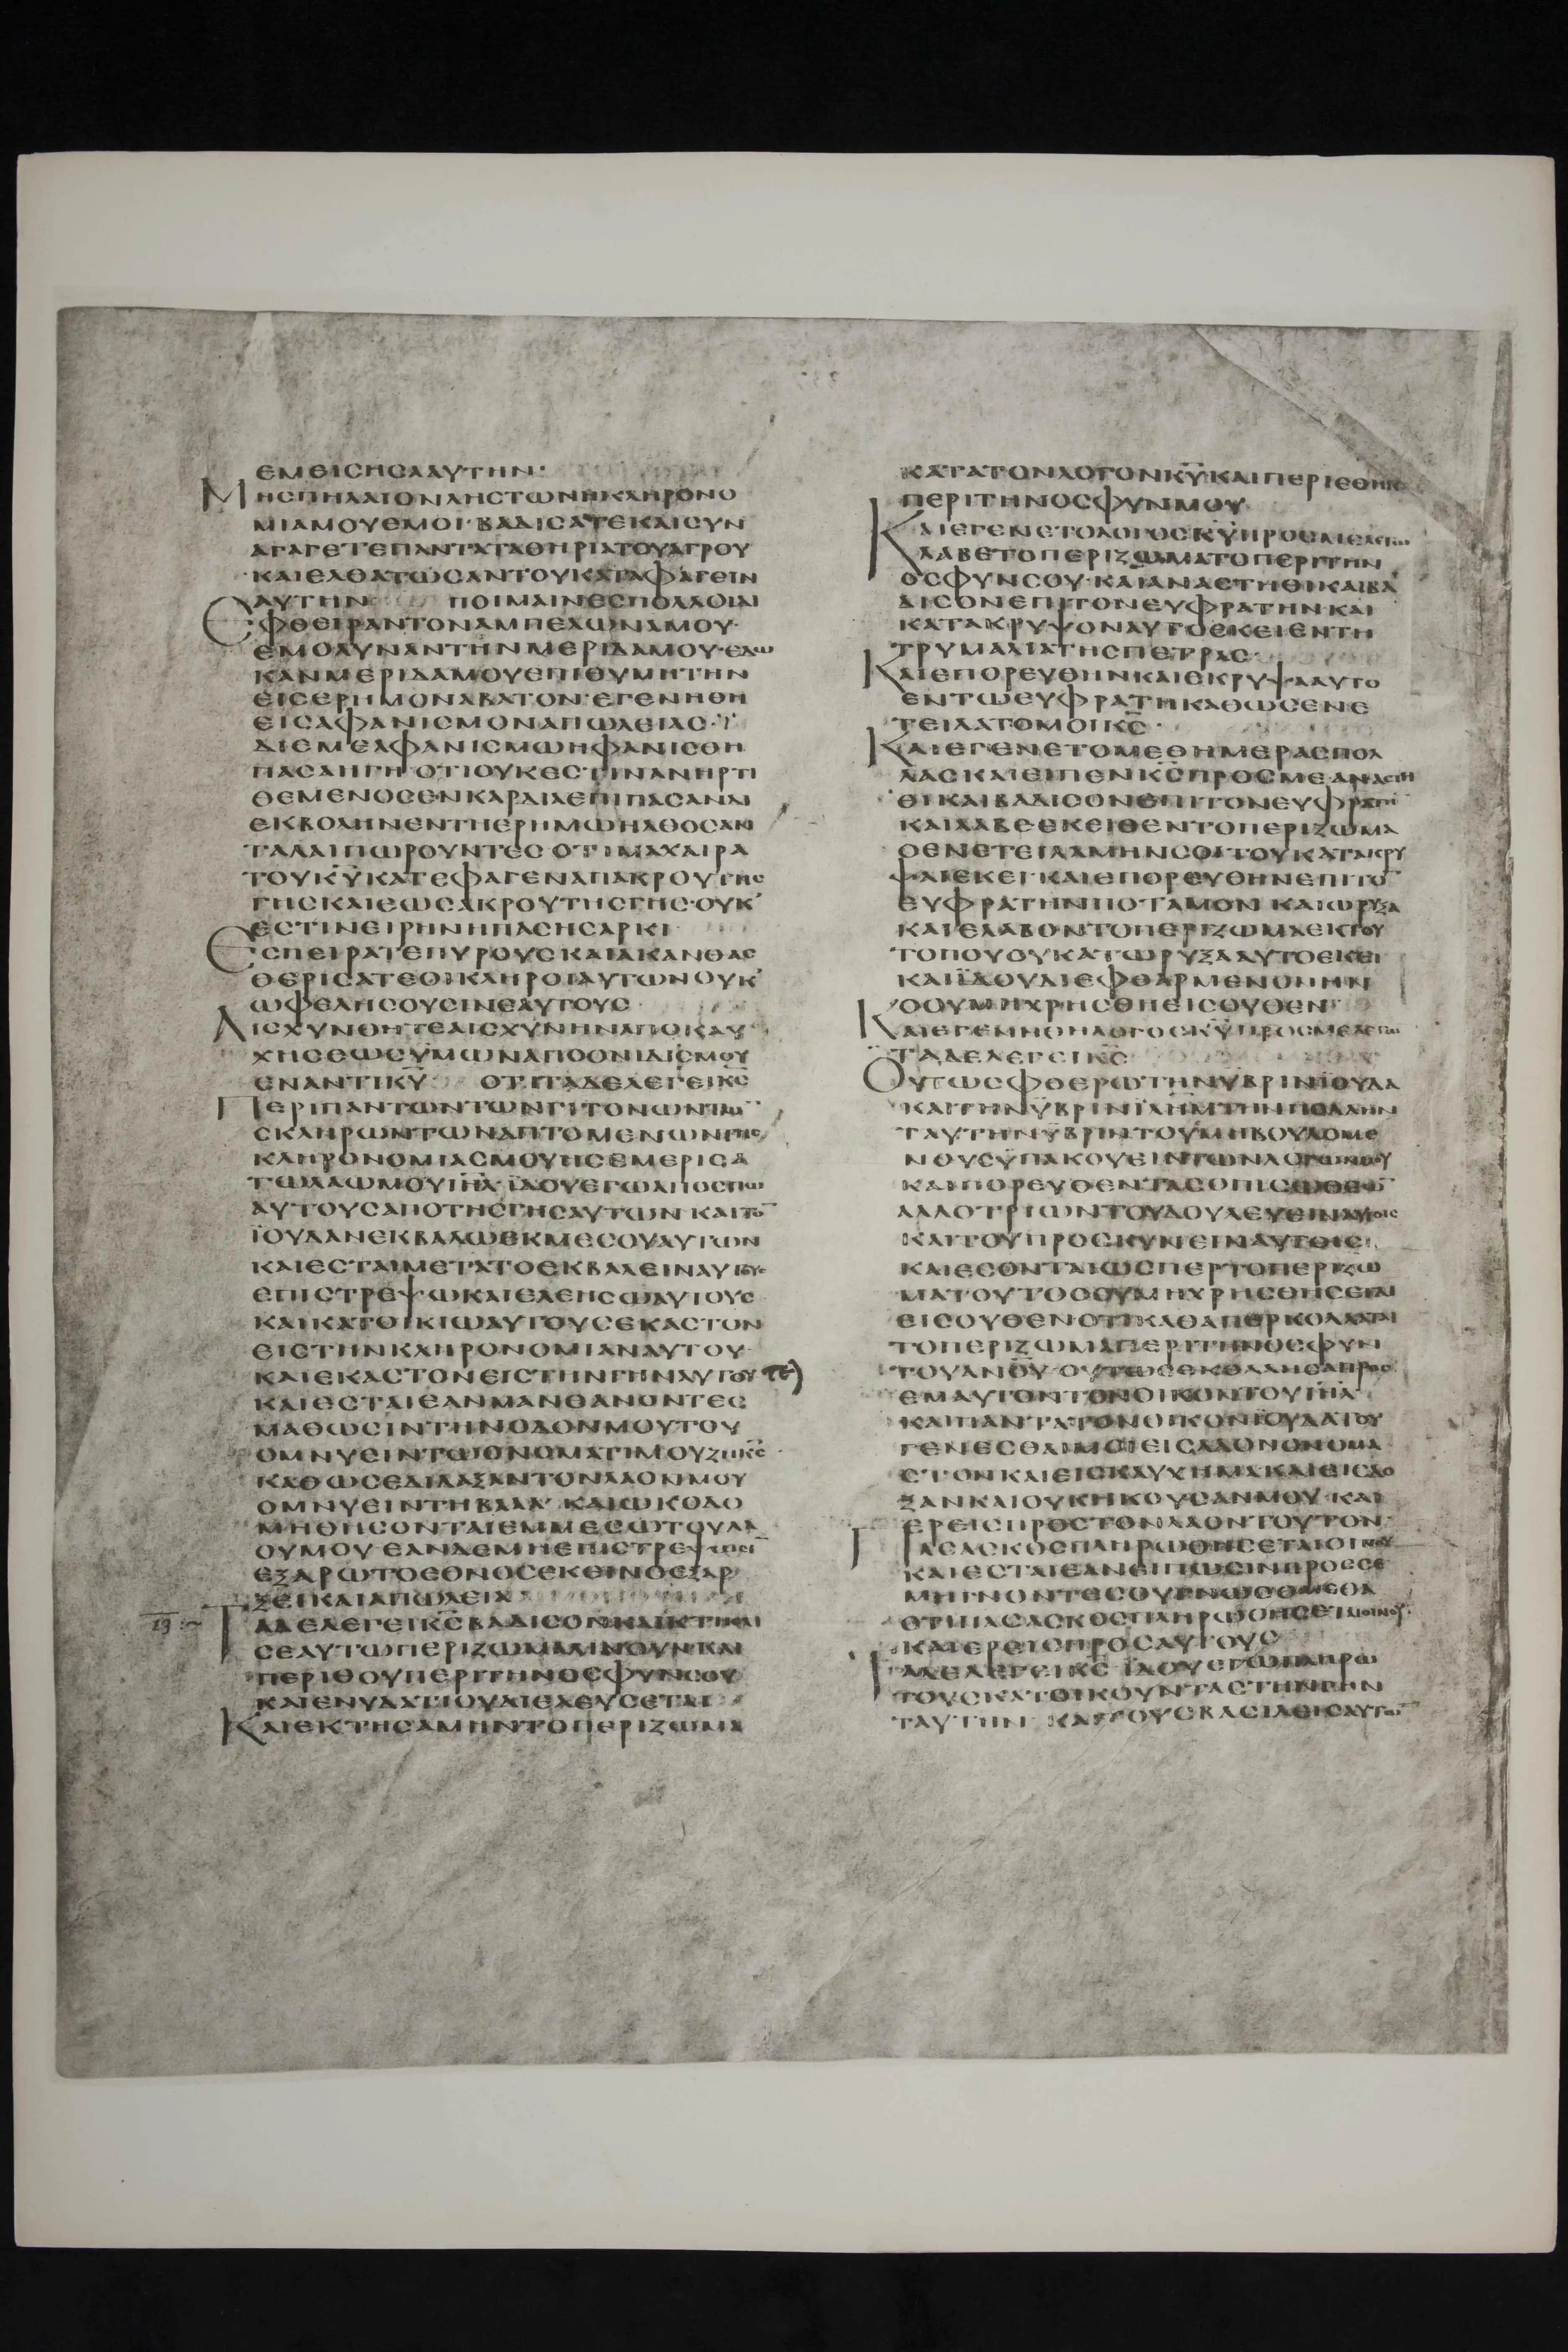 ΕΜΕΙСΗСΑΑΥΤΗΝ·
ΜΗСΠΗΛΑΙΟΝΛΗСΤΩΝΗΚΛΗΡΟΝΟ
ΜΙΑΜΟΥΕΜΟΙ·ΒΑΔΙСΑΤΕΚΑΙСΥΝ
ΑΓΑΓΕΤΕΠΑΝΤΑΤΑΘΗΡΙΑΤΟΥΑΓΡΟΥ
ΚΑΙΕΛΘΑΤΩСΑΝΤΟΥΚΑΤΑΦΑΓΕΙΝ
ΑΥΤΗΝ ΠΟΙΜΑΙΝΕСΠΟΛΛΟΙΔΙ
ΕΦΘΕΙΡΑΝΤΟΝΑΜΠΕΛΩΝΑΜΟΥ·
ΕΜΟΛΥΝΑΝΤΗΝΜΕΡΙΔΑΜΟΥ·ΕΔΩ
ΚΑΝΜΕΡΙΔΑΜΟΥΕΠΙΘΥΜΗΤΗΝ
ΕΙСΕΡΗΜΟΝΑΒΑΤΟΝ·ΕΓΕΝΗΘΗ
ΕΙСΑΦΑΝΙСΜΟΝΑΠΩΛΕΙΑС·
ΔΙΕΜΕΑΦΑΝΙСΜΩΗΦΑΝΙСΘΗ
ΠΑСΑΗΓΗ·ΟΤΙΟΥΚΕСΤΙΝΑΝΗΡΤΙ
ΘΕΜΕΝΟСΕΝΚΑΡΔΙΑΕΠΙΠΑСΑΝΔΙ
ΕΚΒΟΛΗΝΕΝΤΗΕΡΗΜΩΗΛΘΟСΑΝ
ΤΑΛΑΙΠΩΡΟΥΝΤΕС ΟΤΙΜΑΧΑΙΡΑ
ΤΟΥΚΥΚΑΤΕΦΑΓΕΝΑΠΑΚΡΟΥΤΗС
ΓΗСΚΑΙΕΩСΑΚΡΟΥΤΗСΓΗС·ΟΥΚ
ΕСΤΙΝΕΙΡΗΝΗΠΑСΗСΑΡΚΙ
ΕСΠΕΙΡΑΤΕΠΥΡΟΥСΚΑΙΑΚΑΝΘΑС
ΘΕΡΙСΑΤΕΟΙΚΛΗΡΟΙΑΥΤΩΝΟΥΚ
ΩΦΕΛΗСΟΥСΙΝΕΑΥΤΟΥС
ΑΙСΧΥΝΘΗΤΕΑΙСΧΥΝΗΝΑΠΟΚΑΥ
ΧΗСΕΩСΥΜΩΝΑΠΟΟΝΙΔΙСΜΟΥ
ΕΝΑΝΤΙΚΥ ΟΤΙΤΑΔΕΛΕΓΕΙΚС
ΠΕΡΙΠΑΝΤΩΝΤΩΝΓΙΤΟΝΩΝΤΩΝ
СΚΛΗΡΩΝΤΩΝΑΠΤΟΜΕΝΩΝΤΗС
ΚΛΗΡΟΝΟΜΙΑСΜΟΥΗСΕΜΕΡΙСΑ
ΤΩΛΑΩΜΟΥΙΗΛ·ΙΔΟΥΕΓΩΑΠΟСΠΩ
ΑΥΤΟΥСΑΠΟΤΗСΓΗСΑΥΤΩΝ·ΚΑΙΤΟ
ΙΟΥΔΑΝΕΚΒΑΛΩΕΚΜΕСΟΥΑΥΤΩΝ
ΚΑΙΕСΤΑΙΜΕΤΑΤΟΕΚΒΑΛΕΙΝΑΥΤΟΥС
ΕΠΙСΤΡΕΨΩΚΑΙΕΛΕΗСΩΑΥΤΟΥС
ΚΑΙΚΑΤΟΙΚΙΩΑΥΤΟΥСΕΚΑСΤΟΝ
ΕΙСΤΗΝΚΛΗΡΟΝΟΜΙΑΝΑΥΤΟΥ·
ΚΑΙΕΚΑСΤΟΝΕΙСΤΗΝΓΗΝΑΥΤΟΥ
ΚΑΙΕСΤΑΙΕΑΝΜΑΝΘΑΝΟΝΤΕС
ΜΑΘΩСΙΝΤΗΝΟΔΟΝΜΟΥΤΟΥ
ΟΜΝΥΕΙΝΤΩΟΝΟΜΑΤΙΜΟΥΖΗΚС
ΚΑΘΩСΕΔΙΔΑΞΑΝΤΟΝΛΑΟΝΜΟΥ
ΟΜΝΥΕΙΝΤΗΒΑΑΛ ΚΑΙΩΚΟΔΟ
ΜΗΘΗСΟΝΤΑΙΕΜΜΕСΩΤΟΥΛΑ
ΟΥΜΟΥ·ΕΑΝΔΕΜΗΕΠΙСΤΡΕΨΩСΙ
ΕΞΑΡΩΤΟΕΘΝΟСΕΚΕΙΝΟΕΞΑΡ
ΞΕΙΚΑΙΑΠΩΛΕΙΑ
ΤΑΔΕΛΕΓΕΙΚСΒΑΔΙСΟΝΚΑΙΚΤΗСΑΙ
СΕΑΥΤΩΠΕΡΙΖΩΜΑΛΙΝΟΥΝΚΑΙ
ΠΕΡΙΘΟΥΠΕΡΙΤΗΝΟСΦΥΝСΟΥ
ΚΑΙΕΝΥΔΑΤΙΟΥΔΙΕΛΕΥСΕΤΑΙ
ΚΑΙΕΚΤΗСΑΜΗΝΤΟΠΕΡΙΖΩΜΑ
ΚΑΤΑΤΟΝΛΟΓΟΝΚΥΚΑΙΠΕΡΙΕΘΗΚΑ
ΠΕΡΙΤΗΝΟСΦΥΝΜΟΥ
ΚΑΙΕΓΕΝΕΤΟΛΟΓΟСΚΥΠΡΟСΜΕΛΕΓΩΝ
ΛΑΒΕΤΟΠΕΡΙΖΩΜΑΤΟΠΕΡΙΤΗΝ
ΟСΦΥΝСΟΥ·ΚΑΙΑΝΑСΤΗΘΙΚΑΙΒΑ
ΔΙСΟΝΕΠΙΤΟΝΕΥΦΡΑΤΗΝΚΑΙ
ΚΑΤΑΚΡΥΨΟΝΑΥΤΟΕΚΕΙΕΝΤΗ
ΤΡΥΜΑΛΙΑΤΗСΠΕΤΡΑС·
ΚΑΙΕΠΟΡΕΥΘΗΝΚΑΙΕΚΡΥΨΑΑΥΤΟ
ΕΝΤΩΕΥΦΡΑΤΗΚΑΘΩСΕΝΕ
ΤΕΙΛΑΤΟΜΟΙΚС·
ΚΑΙΕΓΕΝΕΤΟΜΕΘΗΜΕΡΑСΠΟΛ
ΛΑСΚΑΙΕΙΠΕΝΚСΠΡΟСΜΕ·ΑΝΑСΤΗ
ΘΙΚΑΙΒΑΔΙСΟΝΕΠΙΤΟΝΕΥΦΡΑΤΗ
ΚΑΙΛΑΒΕΕΚΕΙΘΕΝΤΟΠΕΡΙΖΩΜΑ
ΟΕΝΕΤΕΙΛΑΜΗΝСΟΙΤΟΥΚΑΤΑΚΡΥ
ΨΑΙΕΚΕΙ·ΚΑΙΕΠΟΡΕΥΘΗΝΕΠΙΤΟ
ΕΥΦΡΑΤΗΝΠΟΤΑΜΟΝ ΚΑΙΩΡΥΞΑ
ΚΑΙΕΛΑΒΟΝΤΟΠΕΡΙΖΩΜΑΕΚΤΟΥ
ΤΟΠΟΥΟΥΚΑΤΩΡΥΞΑΑΥΤΟΕΚΕΙ
ΚΑΙΙΔΟΥΔΙΕΦΘΑΡΜΕΝΟΝΗΝ
ΟΟΥΜΗΧΡΗСΘΗΕΙСΟΥΘΕΝ
ΚΑΙΕΓΕΝΗΘΗΛΟΓΟСΚΥΠΡΟСΜΕΛΕΓΩΝ
ΤΑΔΕΛΕΓΕΙΚС
ΟΥΤΩСΦΘΕΡΩΤΗΝΥΒΡΙΝΙΟΥΔΑ
ΚΑΙΤΗΝΥΒΡΙΝΙΛΗΜΤΗΝΠΟΛΛΗΝ
ΤΑΥΤΗΝΥΒΡΙΝΤΟΥСΜΗΒΟΥΛΟΜΕ
ΝΟΥСΥΠΑΚΟΥΕΙΝΤΩΝΛΟΓΩΝΜΟΥ
ΚΑΙΠΟΡΕΥΘΕΝΤΑСΟΠΙСΩΘΕΩ
ΑΛΛΟΤΡΙΩΝΤΟΥΔΟΥΛΕΥΕΙΝΑΥΤΟΙС
ΚΑΙΤΟΥΠΡΟСΚΥΝΕΙΝΑΥΤΟΙС
ΚΑΙΕСΟΝΤΑΙΩСΠΕΡΤΟΠΕΡΙΖΩ
ΜΑΤΟΥΤΟΟΟΥΜΗΧΡΗСΘΗСΕΤΑΙ
ΕΙСΟΥΘΕΝΟΤΙΚΑΘΑΠΕΡΚΟΛΛΑΤΑΙ
ΤΟΠΕΡΙΖΩΜΑΠΕΡΙΤΗΝΟСΦΥΝ
ΤΟΥΑΝΟΥ·ΟΥΤΩСΕΚΟΛΛΗСΑΠΡΟС
ΕΜΑΥΤΟΝΤΟΝΟΙΚΟΝΤΟΥΙΗΛ
ΚΑΙΠΑΝΤΑΤΟΝΟΙΚΟΝΙΟΥΔΑΤΟΥ
ΓΕΝΕСΘΑΙΜΟΙΕΙСΛΑΟΝΟΝΟΜΑ
СΤΟΝΚΑΙΕΙСΚΑΥΧΗΜΑΚΑΙΕΙСΔΟ
ΞΑΝΚΑΙΟΥΚΗΚΟΥСΑΝΜΟΥ·ΚΑΙ
ΕΡΕΙСΠΡΟСΤΟΝΛΑΟΝΤΟΥΤΟΝ·
ΠΑСΑСΚΟСΠΛΗΡΩΘΗСΕΤΑΙΟΙΝΟΥ
ΚΑΙΕСΤΑΙΕΑΝΕΙΠΩСΙΝΠΡΟССΕ
ΜΗΓΝΟΝΤΕСΟΥΓΝΩСΟΜΕΘΑ
ΟΤΙΠΑСΑСΚΟСΠΛΗΡΩΘΗСΕΤΑΙΟΙΝΟΥ·
ΚΑΙΕΡΕΙСΠΡΟСΑΥΤΟΥС
ΤΑΔΕΛΕΓΕΙΚС ΙΔΟΥΕΓΩΠΛΗΡΩ
ΤΟΥСΚΑΤΟΙΚΟΥΝΤΑСΤΗΝΓΗΝ
ΤΑΥΤΗΝ ΚΑΙΤΟΥСΒΑСΙΛΕΙСΑΥΤΩ